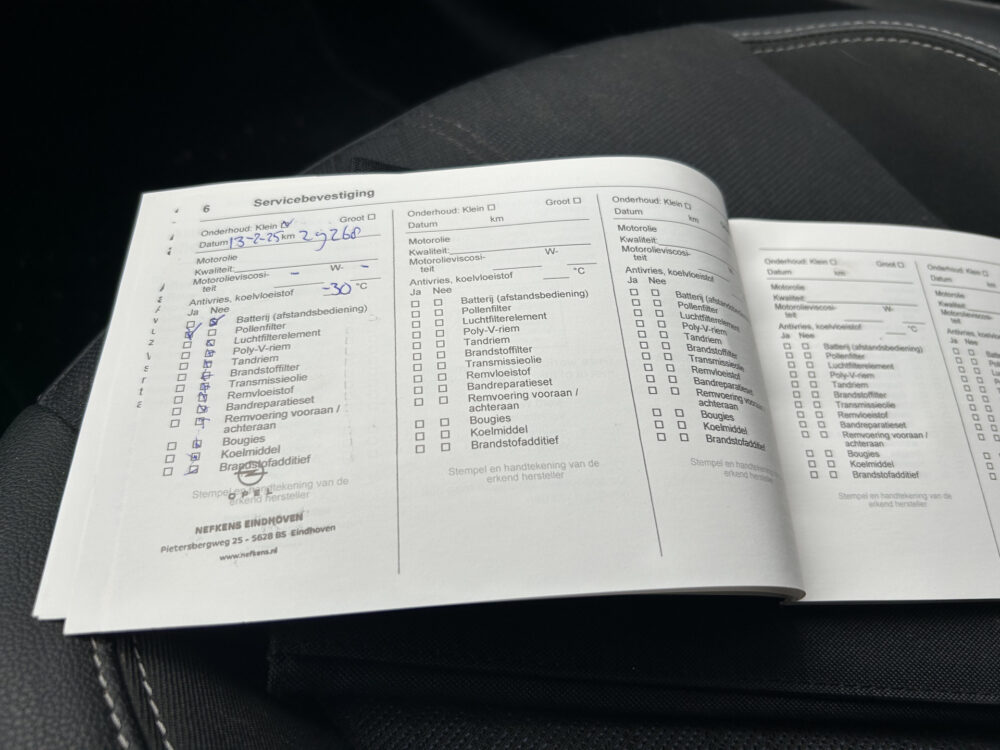 6 Servicebevestiging
Onderhoud: Klein Groot
Datum 13-2-25 km 29268
Motorolie
Kwaliteit:
Motorolieviscosi- - W- -
teit
Antivries, koelvloeistof -30 °C
Ja Nee
Batterij (afstandsbediening)
Pollenfilter
Luchtfilterelement
Poly-V-riem
Tandriem
Brandstoffilter
Transmissieolie
Remvloeistof
Bandreparatieset
Remvoering vooraan /
achteraan
Bougies
Koelmiddel
Brandstofadditief
Stempel en handtekening van de
erkend hersteller
OPEL
NEFKENS EINDHOVEN
Pietersbergweg 25 - 5628 BS Eindhoven
www.nefkens.nl
Onderhoud: Klein Groot
Datum km
Motorolie
Kwaliteit:
Motorolieviscosi- W-
teit
Antivries, koelvloeistof °C
Ja Nee
Batterij (afstandsbediening)
Pollenfilter
Luchtfilterelement
Poly-V-riem
Tandriem
Brandstoffilter
Transmissieolie
Remvloeistof
Bandreparatieset
Remvoering vooraan /
achteraan
Bougies
Koelmiddel
Brandstofadditief
Stempel en handtekening van de
erkend hersteller
Onderhoud: Klein
Datum km
Motorolie
Kwaliteit:
Motorolieviscosi-
teit
Antivries, koelvloeistof
Ja Nee
Batterij (afstandsbediening)
Pollenfilter
Luchtfilterelement
Poly-V-riem
Tandriem
Brandstoffilter
Transmissieolie
Remvloeistof
Bandreparatieset
Remvoering vooraan
achteraan
Bougies
Koelmiddel
Brandstofadditief
Stempel en handtekening
erkend hersteller
Onderhoud: Klein Groot
Datum km
Motorolie
Kwaliteit:
Motorolieviscosi- W-
teit
Antivries, koelvloeistof °C
Ja Nee
Batterij (afstandsbediening)
Pollenfilter
Luchtfilterelement
Poly-V-riem
Tandriem
Brandstoffilter
Transmissieolie
Remvloeistof
Bandreparatieset
Remvoering vooraan /
achteraan
Bougies
Koelmiddel
Brandstofadditief
Stempel en handtekening van de
erkend hersteller
Onderhoud: Klein
Datum
Motorolie
Kwaliteit:
Motorolieviscosi-
teit
Antivries, koelvloeistof
Ja Nee